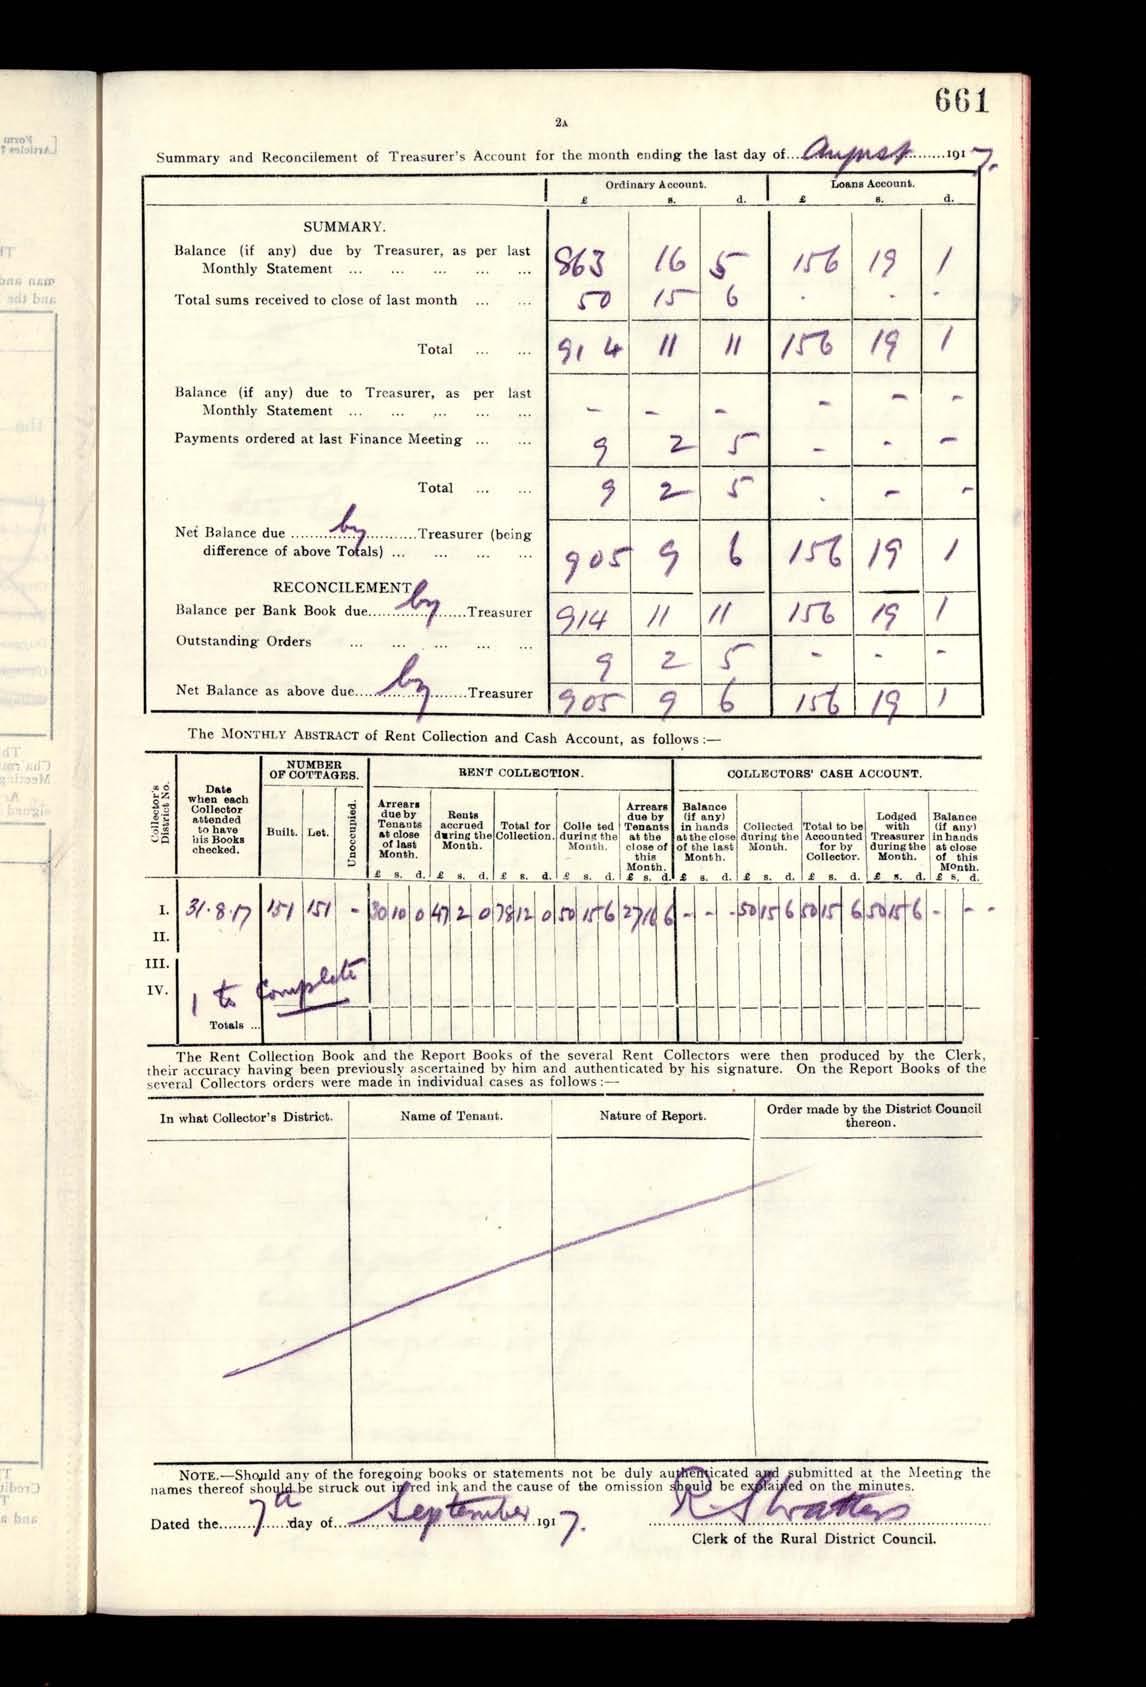 661
2A
Summary and Reconcilement of Treasurer's Account for the month ending the last day of....August.........1917.
Ordinary Account. Loans Account.
£ s. d. £ s. d.
SUMMARY.
Balance (if any) due by Treasurer, as per last
Monthly Statement ... ... ... ... ... 863 16 5 156 19 1
Total sums received to close of last month ... ... 50 15 6 . . .
Total ... ... 914 11 11 156 19 1
Balance (if any) due to Treasurer, as per last
Monthly Statement ... ... ... ... ... - - - - - -
Payments ordered at last Finance Meeting ... ... 9 2 5 - - -
Total ... ... 9 2 5 . - -
Net Balance due ........by...........Treasurer (being
difference of above Totals) ... ... ... ... 905 9 6 156 19 1
RECONCILEMENT
Balance per Bank Book due......by.......Treasurer 914 11 11 156 19 1
Outstanding Orders ... ... ... ... ... 9 2 5 - - -
Net Balance as above due....by.........Treasurer 905 9 6 156 19 1
The MONTHLY ABSTRACT of Rent Collection and Cash Account, as follows :—
Collector's District No.
Date when each Collector attended to have his Books checked.
NUMBER OF COTTAGES.
Built. Let. Unoccupied.
RENT COLLECTION.
Arrears due by Tenants at close of last Month.
Rents accrued during the Month.
Total for Collection.
Colle ted during the Month.
Arrears due by Tenants at the close of this Month.
COLLECTORS' CASH ACCOUNT.
Balance (if any) in hands at the close of the last Month.
Collected during the Month.
Total to be Accounted for by Collector.
Lodged with Treasurer during the Month.
Balance (if any) in hands at close of this Month.
£ s. d. £ s. d. £ s. d. £ s. d. £ s. d. £ s. d. £ s. d. £ s. d. £ s. d. £ s. d.
I. 31.8.17 151 151 - 30 10 0 47 2 0 78 12 0 50 15 6 27 16 6 - - - 50 15 6 50 15 6 50 15 6 - - -
II.
III.
IV. 1 to Complete
Totals ...
The Rent Collection Book and the Report Books of the several Rent Collectors were then produced by the Clerk,
their accuracy having been previously ascertained by him and authenticated by his signature. On the Report Books of the
several Collectors orders were made in individual cases as follows :—
In what Collector's District. Name of Tenant. Nature of Report. Order made by the District Council thereon.
NOTE.—Should any of the foregoing books or statements not be duly authenticated and submitted at the Meeting the
names thereof should be struck out in red ink and the cause of the omission should be explained on the minutes.
Dated the.......7th.....day of.....September.....1917. R. S Watters
Clerk of the Rural District Council.